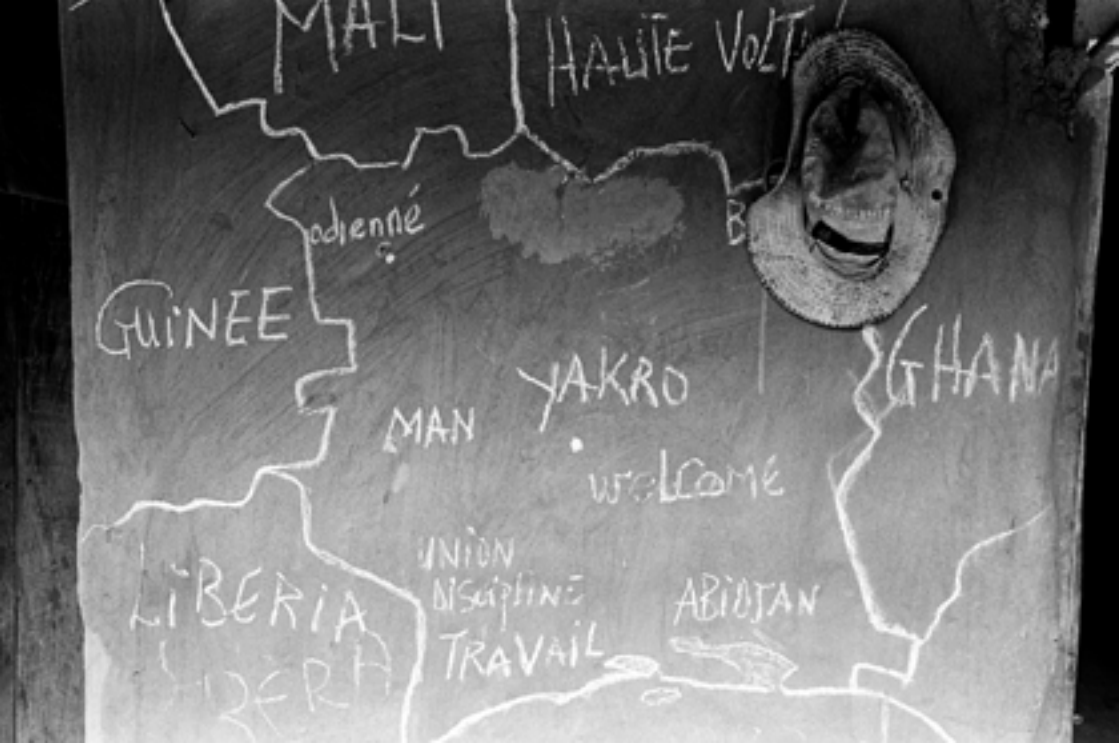 MALI
HAUTE VOLT
odienné
B
GUINEE
GHANA
YAKRO
MAN
welcome
UNION
DISCIPLINE
TRAVAIL
ABIDJAN
LIBERIA